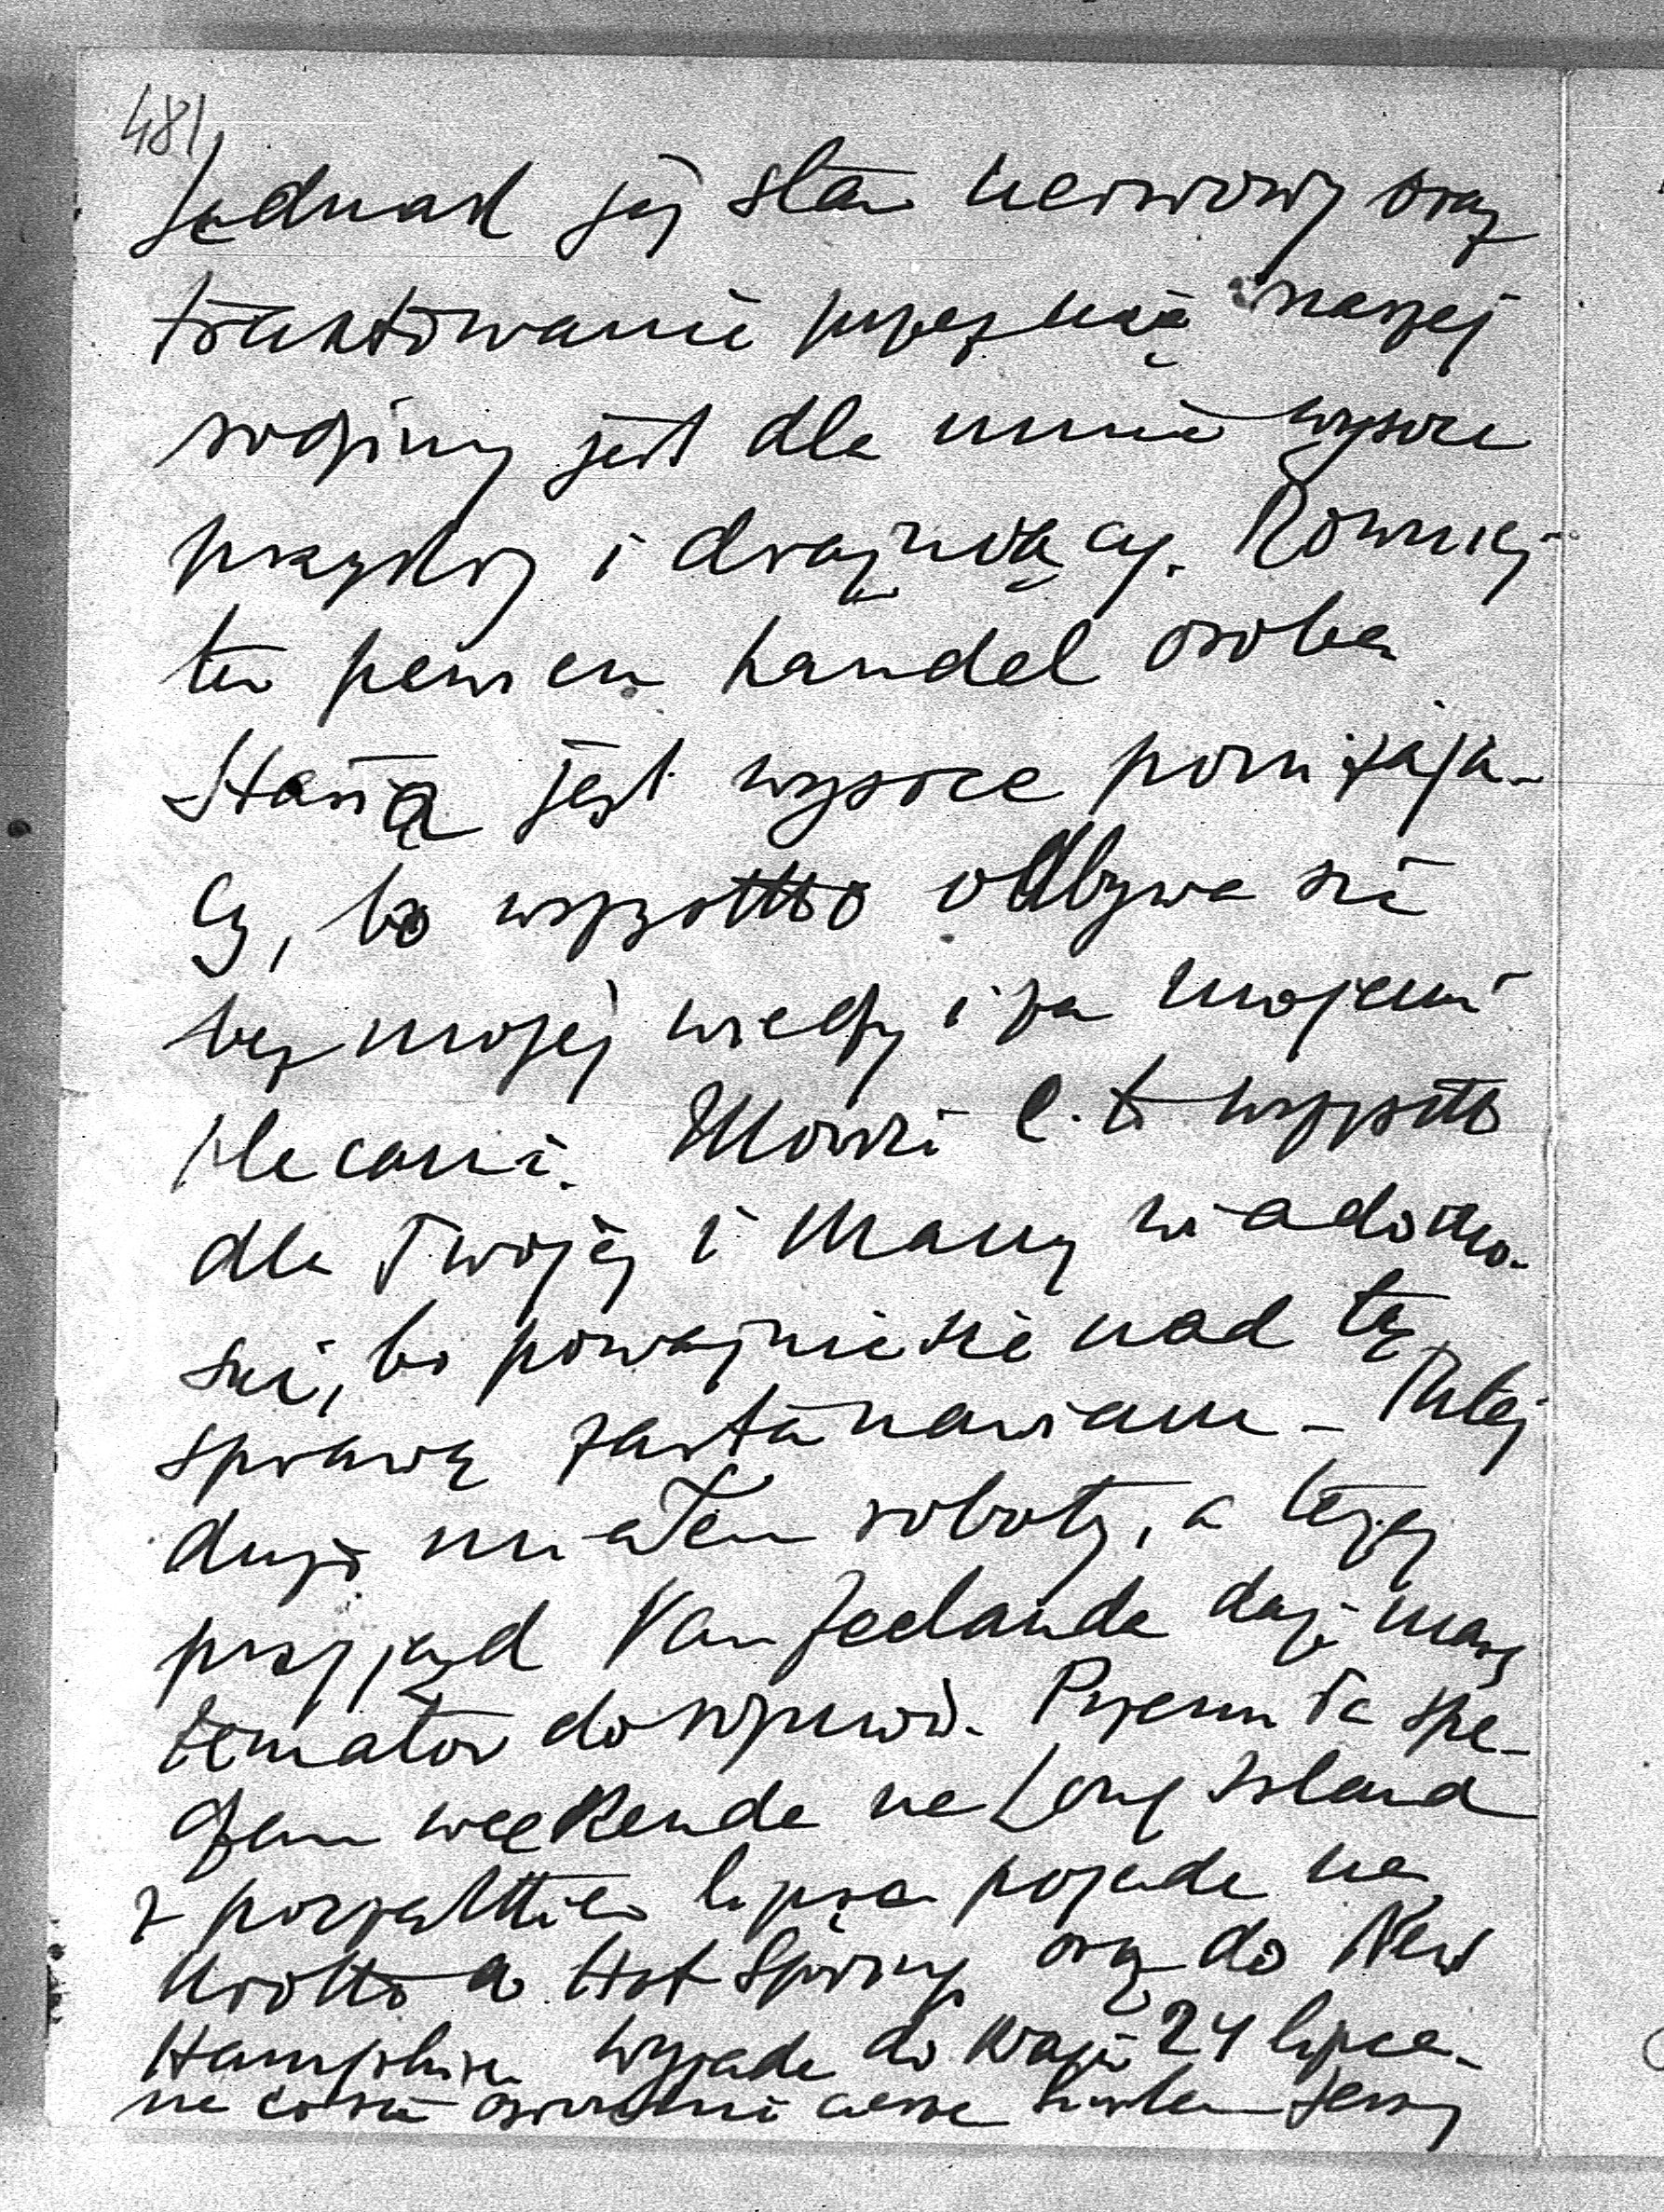 481
Jednak jej stan nerwowy oraz
traktowanie przez nią naszej
rodziny jest dla mnie wysoce
przykry i drażniący. Również
ten pewien handel osobą
Stasia jest wysoce poniżają-
cy, bo wszystko odbywa się
bez mojej wiedzy i za mojemi
plecami. Mówię Ci to wszystko
dla Twojej i Mamy wiadomo-
ści, bo poważnie się nad tą
sprawą zastanawiam – Tutaj
dużo miałem roboty, a teraz
przyjazd Van Zeelanda daje masę
tematów do rozmów. Przemiłe spę-
dzam weekendy na Long Island
z początkiem lipca pojadę na
krótko do Hot Spring oraz do New
Hampshire wyjadę do kraju 24 lipca.
ne Jerzy